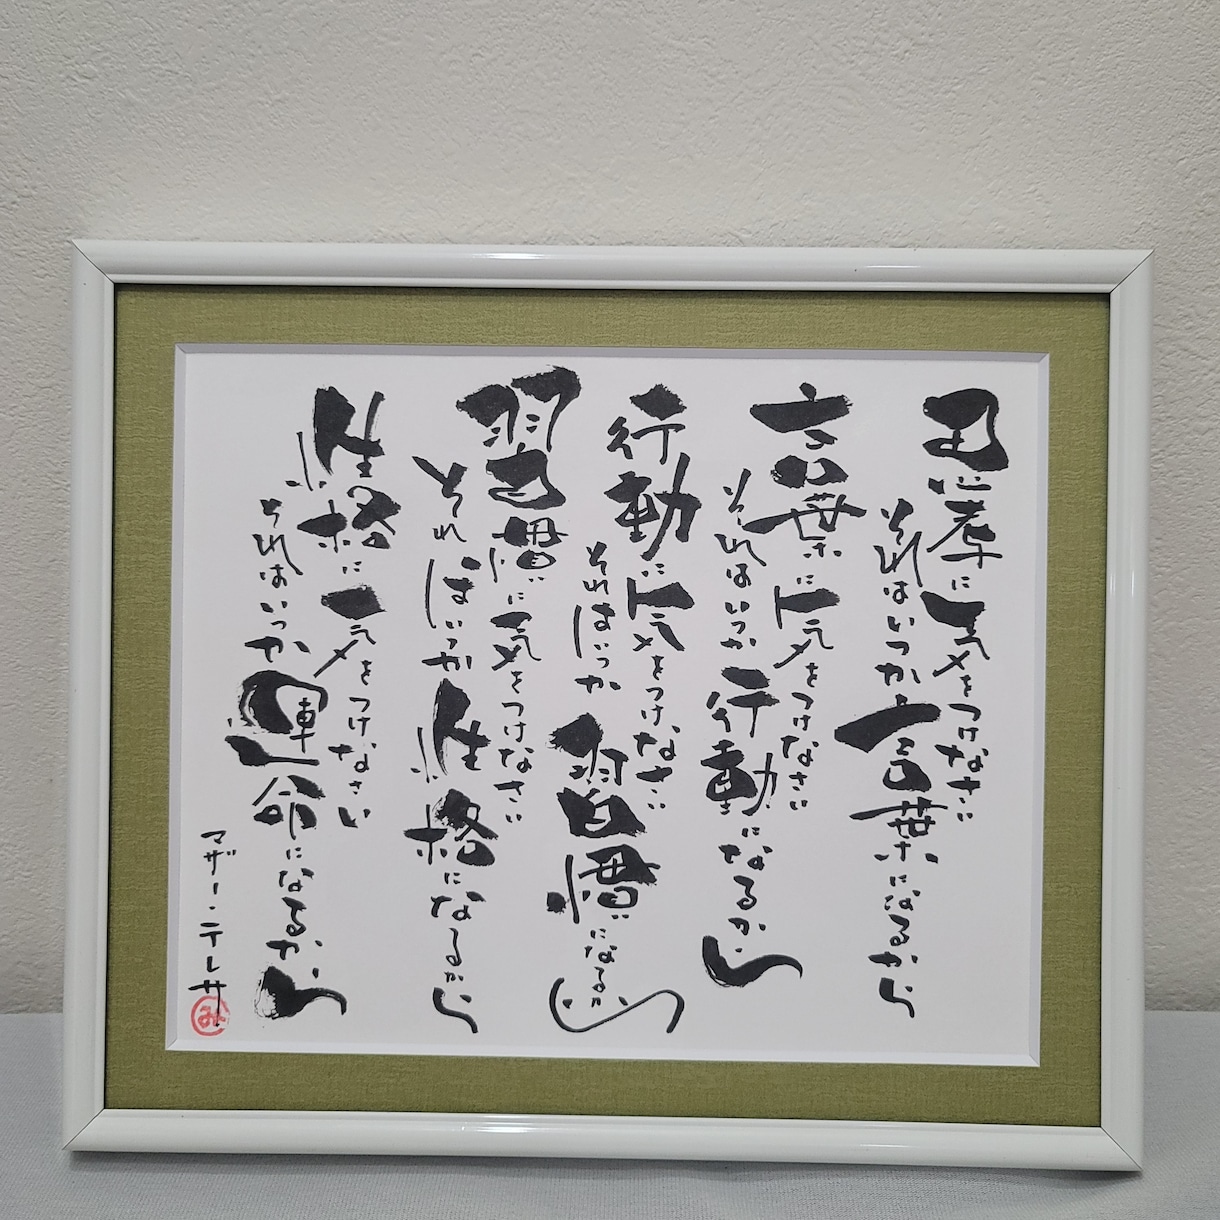 思考に気をつけなさい
それはいつか言葉になるから
言葉に気をつけなさい
それはいつか行動になるから
行動に気をつけなさい
それはいつか習慣になるから
習慣に気をつけなさい
それはいつか性格になるから
性格に気をつけなさい
それはいつか運命になるから
マザー・テレサ
み